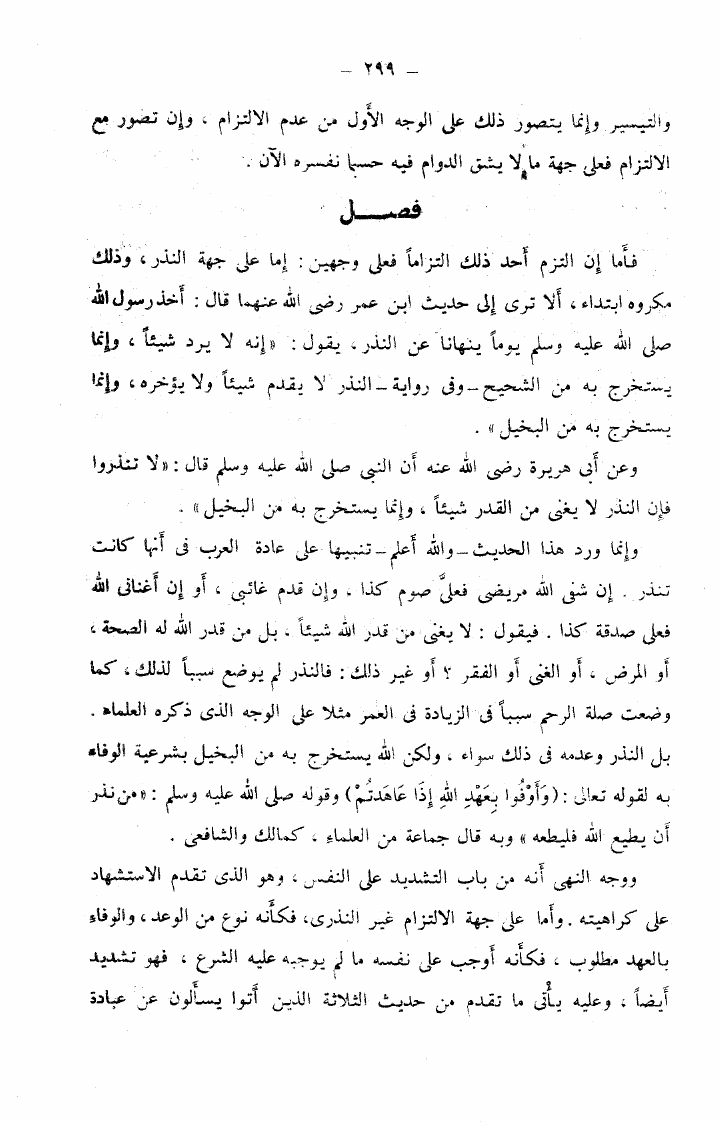 – ٢٩٩ –
والتيسير وإنما يتصور ذلك على الوجه الأول من عدم الالتزام ، وإن تصور مع
الالتزام فعلى جهة ما لا يشق الدوام فيه حسبما نفسره الآن .
فصـــل
فأما إن التزم أحد ذلك التزاماً فعلى وجهين : إما على جهة النذر ، وذلك
مكروه ابتداء ، ألا ترى إلى حديث ابن عمر رضى الله عنهما قال : أخذ رسول الله
صلى الله عليه وسلم يوماً ينهانا عن النذر ، يقول : «إنه لا يرد شيئاً ، وإنما
يستخرج به من الشحيح ــ وفى رواية ــ النذر لا يقدم شيئاً ولا يؤخره ، وإنما
يستخرج به من البخيل» .
وعن أبى هريرة رضى الله عنه أن النبى صلى الله عليه وسلم قال : «لا تنذروا
فإن النذر لا يغنى من القدر شيئاً ، وإنما يستخرج به من البخيل» .
وإنما ورد هذا الحديث ــ والله أعلم ــ تنبيها على عادة العرب فى أنها كانت
تنذر . إن شفى الله مريضى فعلىَّ صوم كذا ، وإن قدم غائبى ، أو إن أغنانى الله
فعلى صدقة كذا . فيقول : لا يغنى من قدر الله شيئاً ، بل من قدر الله له الصحة ،
أو المرض ، أو الغنى أو الفقر ؟ أو غير ذلك : فالنذر لم يوضع سبباً لذلك ، كما
وضعت صلة الرحم سبباً فى الزيادة فى العمر مثلا على الوجه الذى ذكره العلماء .
بل النذر وعدمه فى ذلك سواء ، ولكن الله يستخرج به من البخيل بشرعية الوفاء
به لقوله تعالى : (وَأَوْفُوا بِعَهْدِ اللهِ إِذَا عَاهَدتُمْ) وقوله صلى الله عليه وسلم : «من نذر
أن يطيع الله فليطعه» وبه قال جماعة من العلماء ، كمالك والشافعى .
ووجه النهى أنه من باب التشديد على النفس ، وهو الذى تقدم الاستشهاد
على كراهيته . وأما على جهة الالتزام غير النذرى ، فكأنه نوع من الوعد ، والوفاء
بالعهد مطلوب ، فكأنه أوجب على نفسه ما لم يوجبه عليه الشرع ، فهو تشديد
أيضاً ، وعليه يأتى ما تقدم من حديث الثلاثة الذين أتوا يسألون عن عبادة